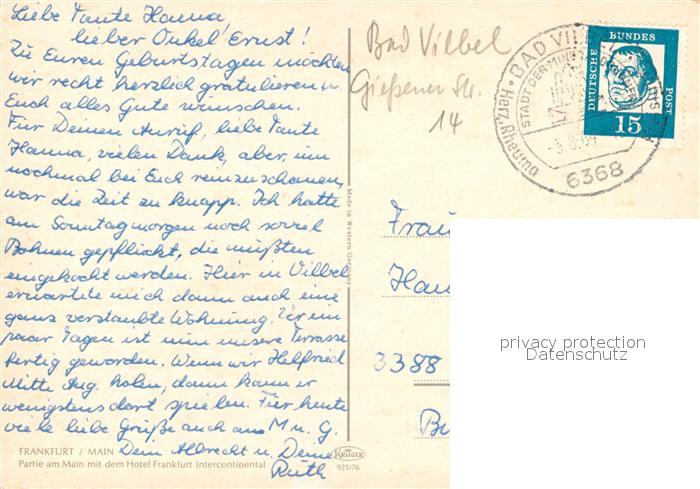 Liebe Tante Hanna,
lieber Onkel Ernst!
Zu Euren Geburtstagen möchten
wir recht herzlich gratulieren u.
Euch alles Gute wünschen.
Für Deinen Anruf, liebe Tante
Hanna, vielen Dank, aber um
nochmal bei Euch reinzuschauen,
war die Zeit zu knapp. Ich hatte
am Sonntagmorgen noch soviel
Bohnen gepflückt, die mußten
eingekocht werden. Hier in Vilbel
erwartete mich dann auch eine
ganz verstaubte Wohnung. Vor ein
paar Tagen ist nun unsere Terrasse
fertig geworden. Wenn wir Helfried
Mitte Aug. holen, dann kann er
wenigstens dort spielen. Für heute
viele liebe Grüße auch an M u. G.
Dein Albrecht u. Deine
Ruth
FRANKFURT / MAIN
Partie am Main mit dem Hotel Frankfurt Intercontinental
KRÜGER
925/76
Made in Western Germany
Bad Vilbel
Gießener Str.
14
BAD VILBEL
STADT DER MINERAL
Herz, Rheuma
6368
DEUTSCHE BUNDESPOST
15
Frau
Han
3388
privacy protection
Datenschutz